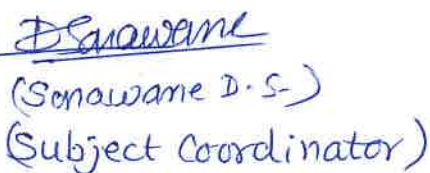 DSonawane
(Sonawane D.S.)
(Subject Coordinator)